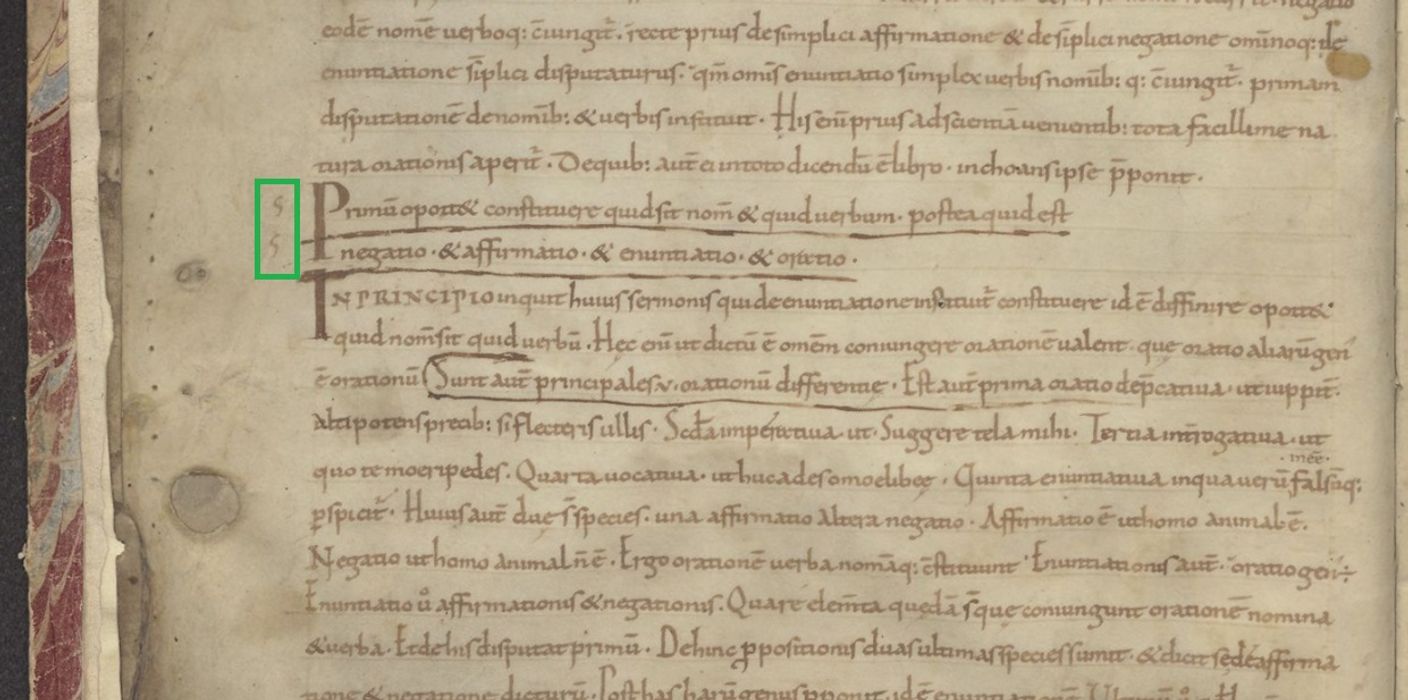 eodē nom̄e uerboq: c̄iungit̄. recte prius de simplici affirmatione & de sīplici negatione om̄inoq: de
enuntiatione sīplici disputaturus. qm̄ omīs enuntiatio simplex uerbis nomīb: q: c̄iungit̄. primam
disputationē de nomīb: & uerbis instituit. His enī prius ad scientiā uenientib: tota facillime na
tura orationis aperit̄. De quib: aut̄ ei in toto dicendū ē libro. inchoans ipse p̄ponit.
Primū oportet constituere quid sit nom̄ & quid uerbum. postea quid est
negatio. & affirmatio. & enuntiatio. & oratio.
IN PRINCIPIO inquit huius sermonis qui de enuntiatione instituit̄ constituere id ē diffinire oportet
quid nom̄ sit quid uerbū. Hec enī ut dictū ē omēm coniungere orationē ualent. que oratio aliarū gen̄
ē orationū Sunt aut̄ principales .v. orationū differentie. Est aut̄ prima oratio dep̄catiua. ut iuppit̄.
Altipotens precib: si flecteris ullis. Scd̄a imperatiua ut. Suggere tela mihi. Tertia int̄rogatiua. ut
. inēē.
quo te moeri pedes. Quarta uocatiua. ut huc ades o moelibee. Quinta enuntiatiua in qua uerū falsūq:
p̱spicit̄. Huius aut̄ due s̄ species. una affirmatio altera negatio. Affirmatio ē ut homo animal ē.
Negatio ut homo animal n̄ ē. Ergo orationē uerba nomāq: c̄stituunt Enuntiationis aut̄. oratio gen̄÷
Enuntiatio ů affirmationis & negationis. Quare elem̄ta quedā s̄ que coniungunt orationē nomina
& uerba. Et de his disputat primū. Dehinc p̱positionis duas ultimas species sumit. & dicit se dē affirma
tione & negatione dicturū. Post has harū genus p̱ponit. id ē enuntiationē.